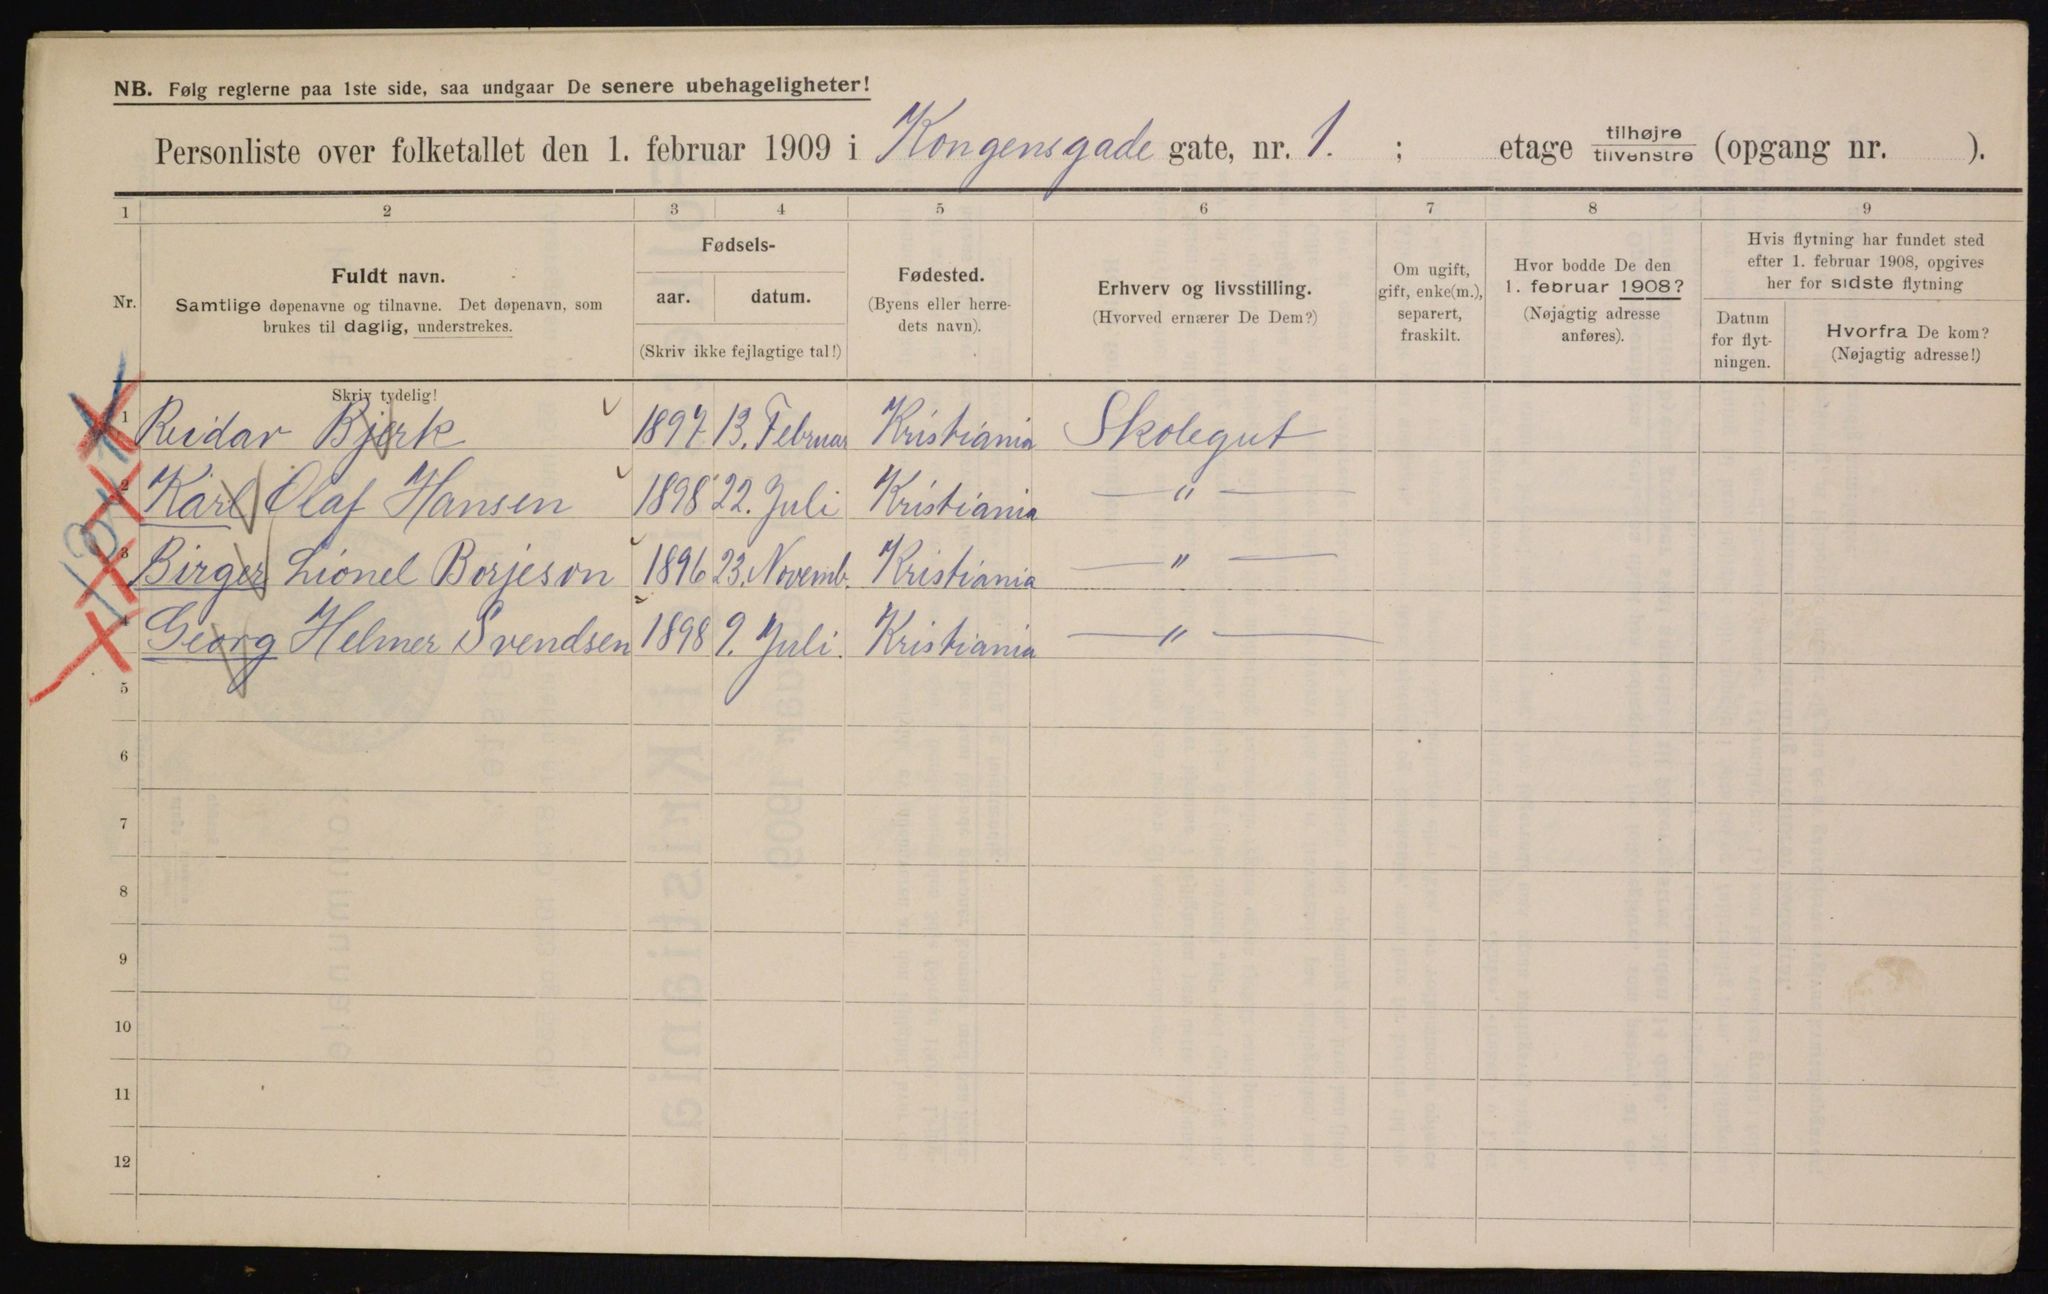 NB. Følg reglerne paa 1ste side, saa undgaar De senere ubehageligheter!
Personliste over folketallet den 1. februar 1909 i Kongensgade gate, nr. 1. ; etage tilhøjre tilvenstre (opgang nr. ).
1 2 3 4 5 6 7 8 9
Nr.
Fuldt navn.
Samtlige døpenavne og tilnavne. Det døpenavn, som
brukes til daglig, understrekes.
Fødsels-
aar. datum.
(Skriv ikke fejlagtige tal!)
Fødested.
(Byens eller herre-
dets navn).
Erhverv og livsstilling.
(Hvorved ernærer De Dem?)
Om ugift,
gift, enke(m.),
separert,
fraskilt.
Hvor bodde De den
1. februar 1908?
(Nøjagtig adresse
anføres).
Hvis flytning har fundet sted
efter 1. februar 1908, opgives
her for sidste flytning
Datum
for flyt-
ningen.
Hvorfra De kom?
(Nøjagtig adresse!)
Skriv tydelig!
1 Reidar Bjerk 1897 13. Februar Kristiania Skolegut
2 Karl Olaf Hansen 1898 22. Juli Kristiania — " —
3 Birger Lionel Borjeson 1896 23. Novemb. Kristiania — " —
4 Georg Helmer Svendsen 1898 9. Juli. Kristiania — " —
5
6
7
8
9
10
11
12